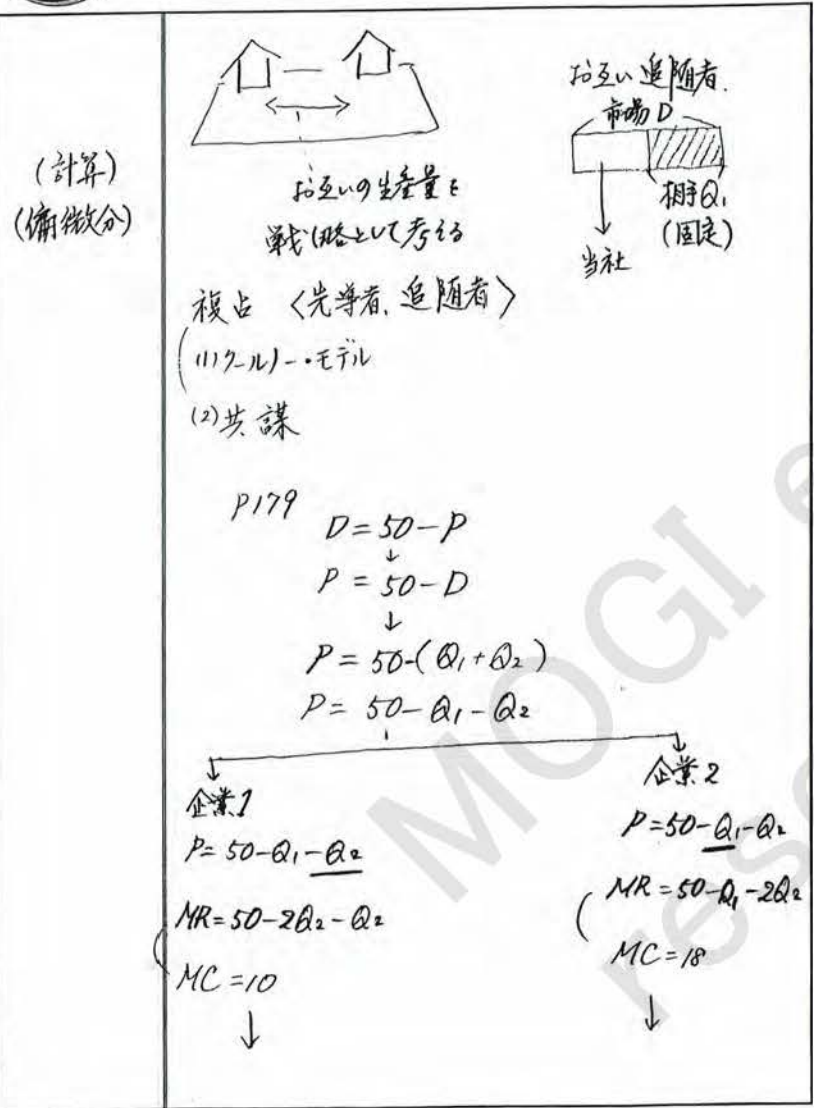 (計算)
(偏微分)
お互いの生産量を
戦略として考える
お互い追随者.
市場D
相手Q₁
(固定)
当社
複占 〈先導者、追随者〉
(1)クールノー・モデル
(2)共謀
P179
D=50-P
↓
P=50-D
↓
P=50-(Q₁+Q₂)
P=50-Q₁-Q₂
企業1
P=50-Q₁-Q₂
MR=50-2Q₂-Q₂
MC=10
↓
企業2
P=50-Q₁-Q₂
MR=50-Q₁-2Q₂
MC=18
↓
MOGI